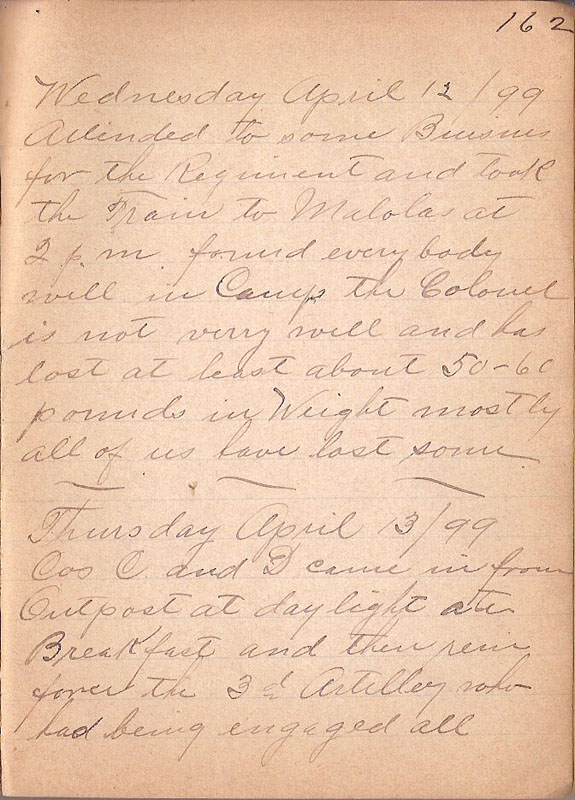 162
Wednesday April 12/99
Attended to some Buisnes
for the Regiment and took
the Train to Malolas at
2 p. m found everybody
well in Camp the Colonel
is not verry well and has
lost at least about 50-60
pounds in Weight mostly
all of us have lost some
Thursday April 13/99
Cos C and D came in from
Outpost at day light ate
Breakfast and then rein
force the 3d Artilley who
had being engaged all